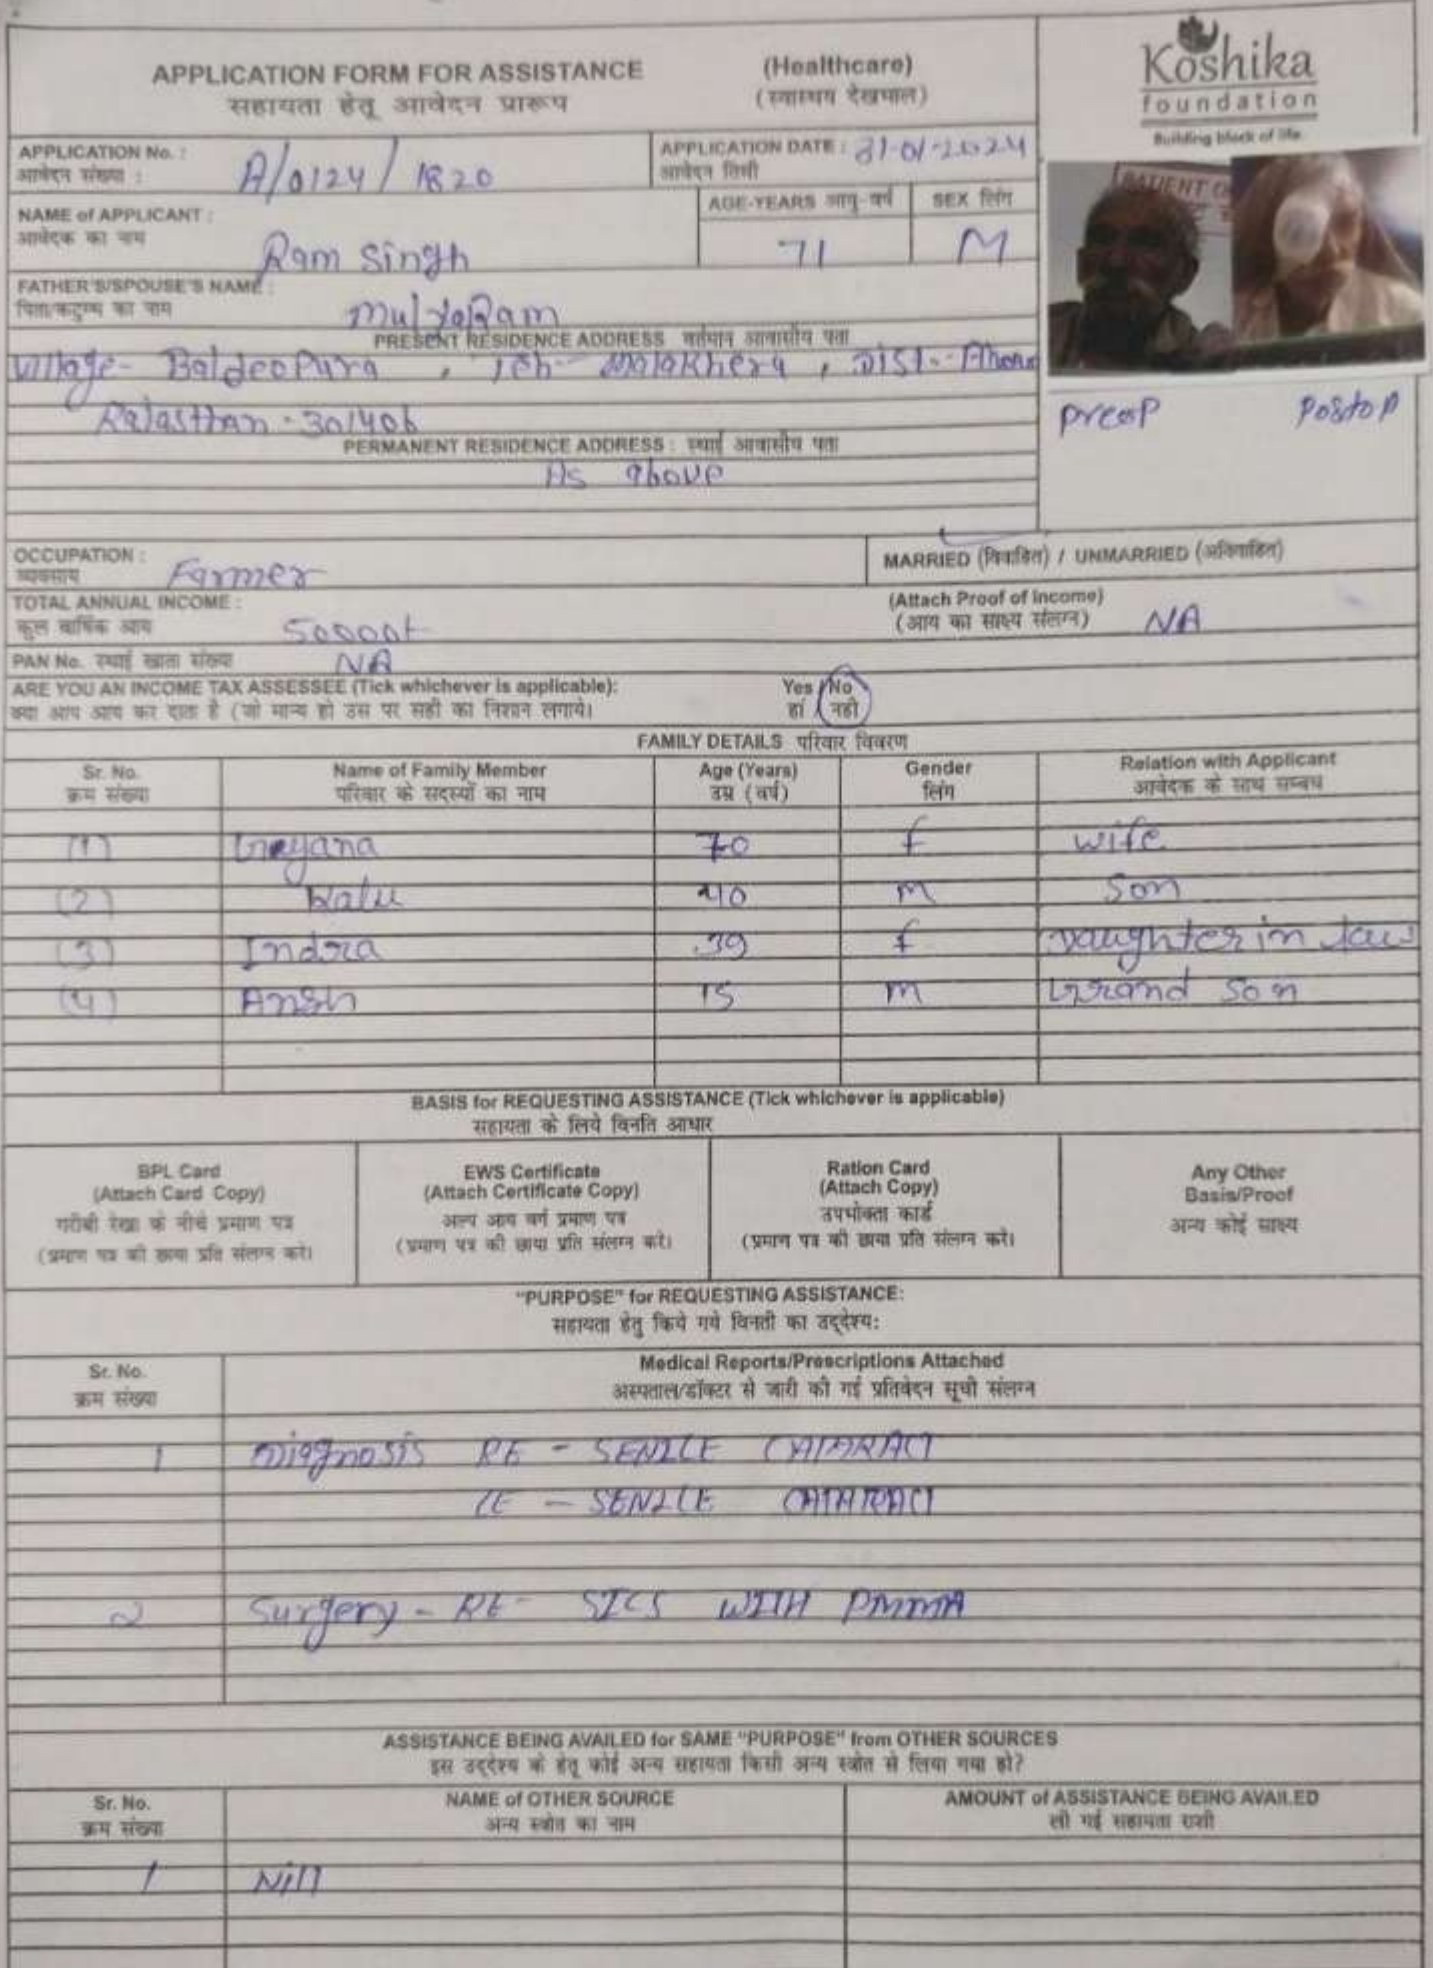 APPLICATION FORM FOR ASSISTANCE (Healthcare)
सहायता हेतू आवेदन प्रारूप (स्वास्थय देखभाल)
Koshika
foundation
Building block of life
APPLICATION No. : A/0124/1820
आवेदन संख्या :
APPLICATION DATE : 31-01-2024
आवेदन तिथी
NAME of APPLICANT : Ram Singh
आवेदक का नाम
AGE-YEARS आयु-वर्ष 71
SEX लिंग M
PATIENT
FATHER'S/SPOUSE'S NAME :
पिता/कटुम्ब का नाम
PRESENT RESIDENCE ADDRESS वर्तमान आवासीय पता
Village- Baldeopura , Teh- Malakhera , Dist.-
Rajasthan - 301406
Preop Postop
PERMANENT RESIDENCE ADDRESS : स्थाई आवासीय पता
As above
OCCUPATION : Farmer
व्यवसाय
MARRIED (विवाहित) / UNMARRIED (अविवाहित)
TOTAL ANNUAL INCOME :
कुल वार्षिक आय
(Attach Proof of Income)
(आय का साक्ष्य संलग्न) NA
PAN No. स्थाई खाता संख्या NA
ARE YOU AN INCOME TAX ASSESSEE (Tick whichever is applicable): Yes / No
क्या आप आय कर दाता है (जो मान्य हो उस पर सही का निशान लगाये। हां / नही
FAMILY DETAILS परिवार विवरण
Sr. No. Name of Family Member Age (Years) Gender Relation with Applicant
क्रम संख्या परिवार के सदस्यों का नाम उम्र (वर्ष) लिंग आवेदक के साथ सम्बध
(1) Gayana 70 f wife
(2) Kalu 40 m Son
(3) Indra 39 f Daughter in law
(4) Ansh 15 m Grand Son
BASIS for REQUESTING ASSISTANCE (Tick whichever is applicable)
सहायता के लिये विनति आधार
BPL Card
(Attach Card Copy)
गरीबी रेखा के नीचे प्रमाण पत्र
(प्रमाण पत्र की छाया प्रति संलग्न करे।
EWS Certificate
(Attach Certificate Copy)
अल्प आय वर्ग प्रमाण पत्र
(प्रमाण पत्र की छाया प्रति संलग्न करे।
Ration Card
(Attach Copy)
उपभोक्ता कार्ड
(प्रमाण पत्र की छाया प्रति संलग्न करे।
Any Other
Basis/Proof
अन्य कोई साक्ष्य
"PURPOSE" for REQUESTING ASSISTANCE:
सहायता हेतु किये गये विनती का उद्देश्य:
Sr. No. Medical Reports/Prescriptions Attached
क्रम संख्या अस्पताल/डॉक्टर से जारी की गई प्रतिवेदन सूची संलग्न
1 Diagnosis RE - SENILE CATARACT
LE - SENILE CATARACT
2 Surgery - RE - SICS WITH PMMA
ASSISTANCE BEING AVAILED for SAME "PURPOSE" from OTHER SOURCES
इस उद्देश्य के हेतू कोई अन्य सहायता किसी अन्य स्त्रोत से लिया गया हो?
Sr. No. NAME of OTHER SOURCE AMOUNT of ASSISTANCE BEING AVAILED
क्रम संख्या अन्य स्त्रोत का नाम ली गई सहायता राशी
1 Nill